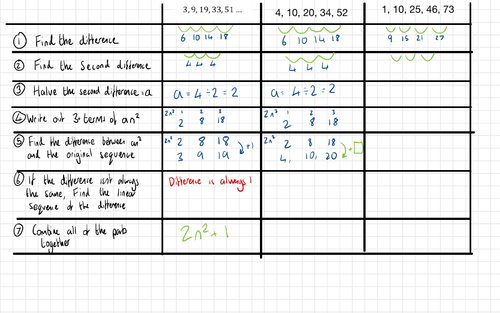 3, 9, 19, 33, 51 ...
4, 10, 20, 34, 52
1, 10, 25, 46, 73
① Find the difference
6 10 14 18
6 10 14 18
9 15 21 27
② Find the second difference
4 4 4
4 4 4
③ Halve the second difference = a
a = 4 ÷ 2 = 2
a = 4 ÷ 2 = 2
④ Write out 3 terms of an²
2n² 1 2 3
2 8 18
2n² 1 2 3
2 8 18
⑤ Find the difference between an²
and the original sequence
2n² 2 8 18
3 9 19
+1
2n² 2 8 18
4, 10, 20
+
⑥ If the difference isnt always
the same, Find the linear
sequence of the difference
Difference is always 1
⑦ Combine all of the parts
together
2n² + 1